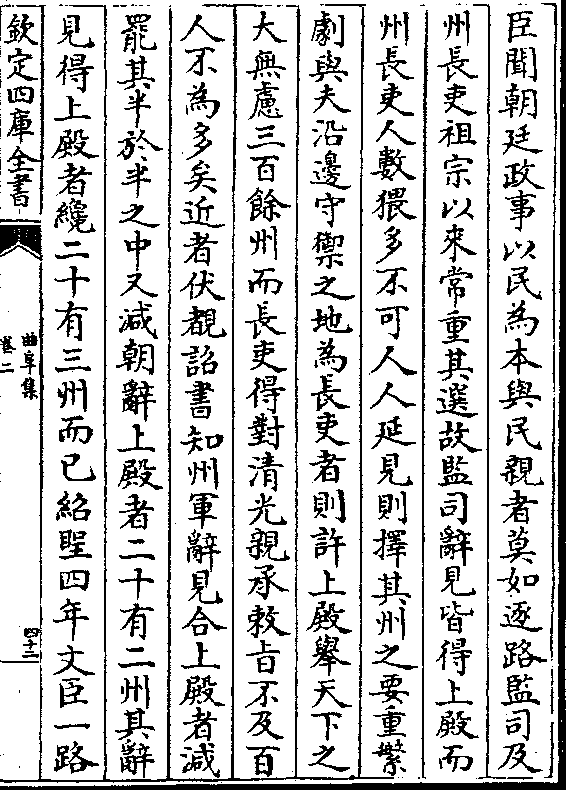 臣聞朝廷政事以民為本與民親者莫如逐路監司及
州長吏祖宗以來常重其選故監司辭見皆得上殿而
州長吏人數猥多不可人人延見則擇其州之要重繁
劇與夫沿邊守禦之地為長吏者則許上殿舉天下之
大無慮三百餘州而長吏得對清光親承敕旨不及百
人不為多矣近者伏覩詔書知州軍辭見合上殿者減
罷其半於半之中又減朝辭上殿者二十有二州其辭
見得上殿者纔二十有三州而已紹聖四年文臣一路
欽定四庫全書
曲阜集
卷二
四十二